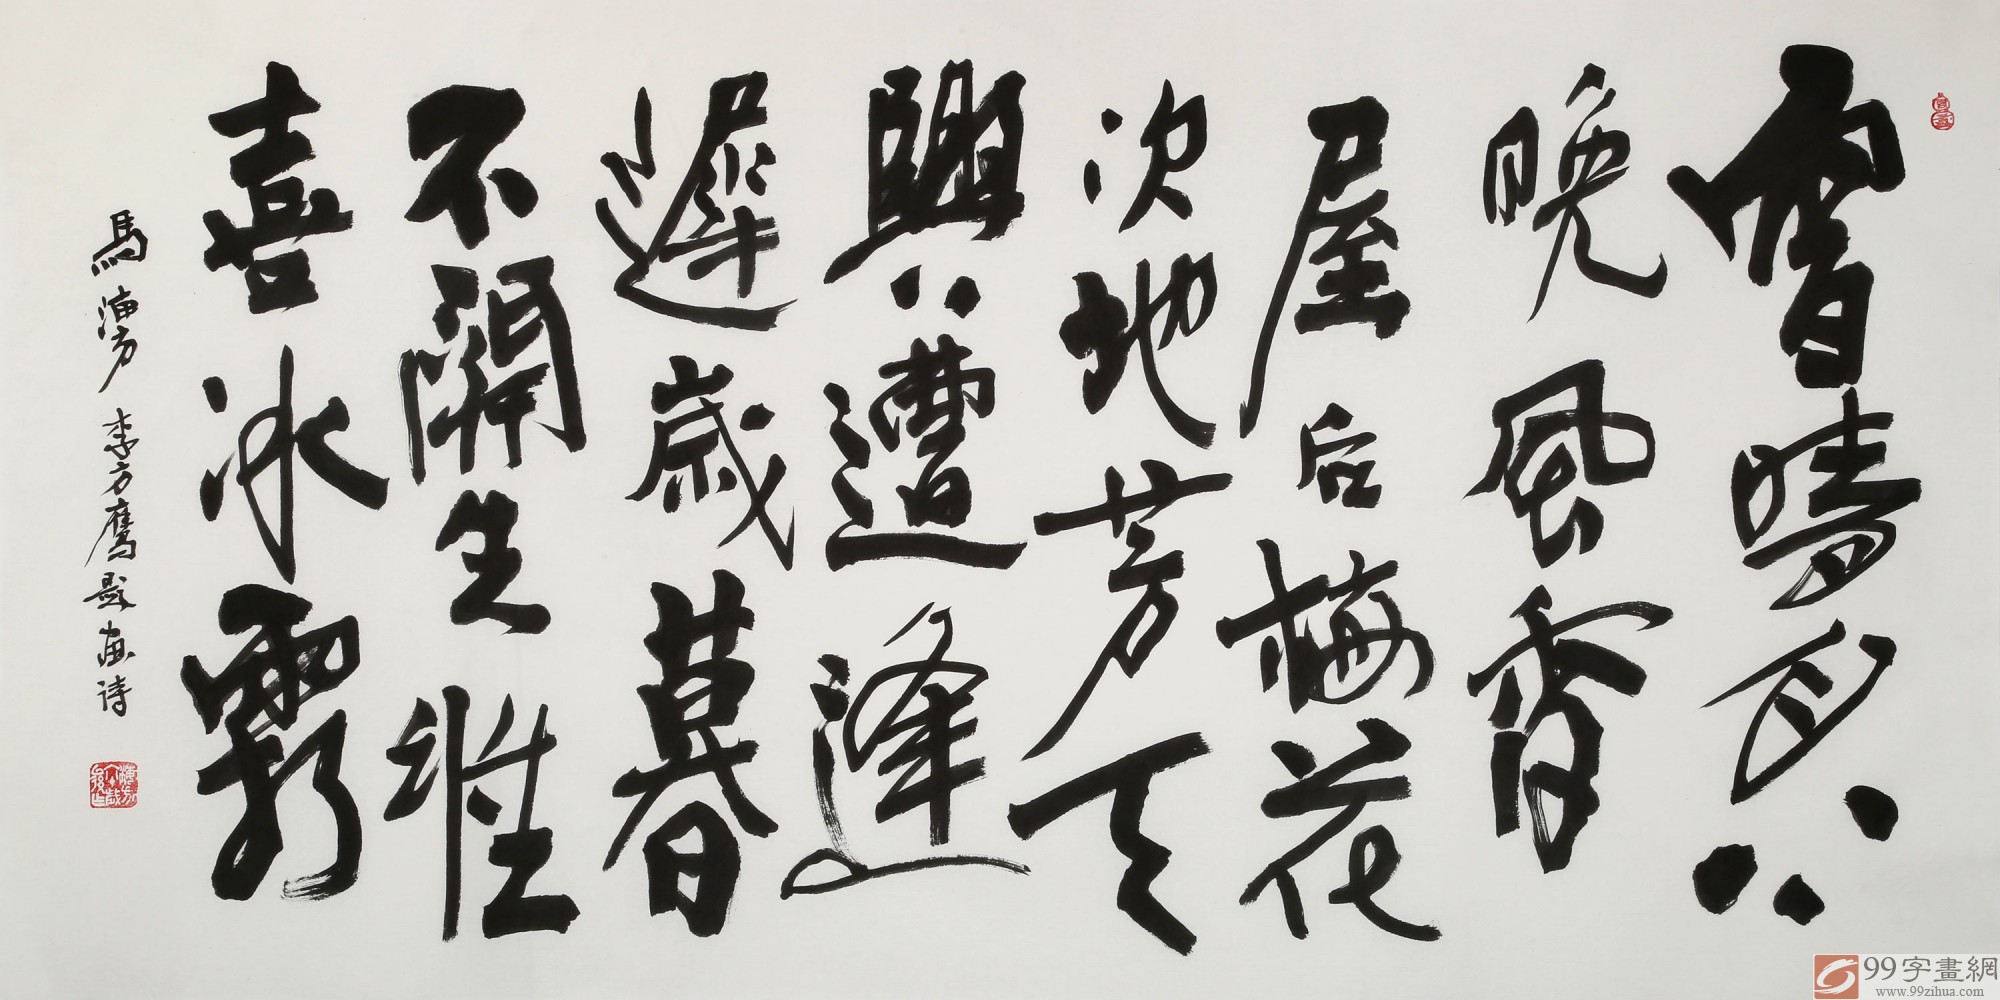 雪晴月
晚風香
屋后梅花
次地芳天
與遭逢
遲歲暮
不關生性
喜冰霜
馬海方 李方鹰題画诗
99字畫網
www.99zihua.com